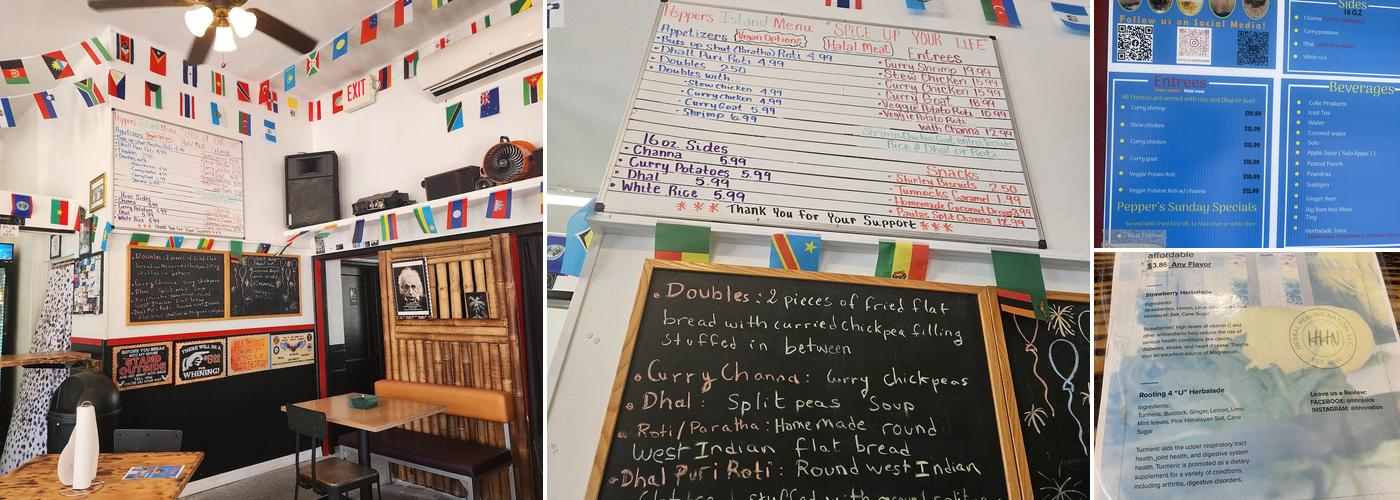 EXIT
BEFORE YOU BREAK
INTO MY HOUSE
STAND
OUTSIDE
THERE WILL BE A
FOR
WHINING!
WARNING
Peppers Island Menu "SPICE UP YOUR LIFE"
Appetizers {Vegan Options} {Halal Meat} Entrees
• Buss up Shut (Paratha) Roti 4.99
• Dhal Puri Roti 4.99
• Doubles 2.50
• Doubles with
• Stew chicken 4.99
• Curry chicken 4.99
• Curry Goat 5.99
• Shrimp 6.99
• Curry Shrimp 19.99
• Stew Chicken 15.99
• Curry Chicken 15.99
• Curry Goat 18.99
• Veggie Potato Roti 10.99
• Veggie Potato Roti
with Channa 12.99
Shrimp, Chicken, Goat, entrees Includes
Rice & Dhal or Roti
16 oz Sides
• Channa 5.99
• Curry Potatoes 5.99
• Dhal 5.99
• White Rice 5.99
Snacks
• Shirley Biscuits 2.50
• Tunnocks Caramel 1.99
• Homemade Coconut Drops 3.99
• Paulas Split Channa
*** Thank You For Your Support ***
• Doubles: 2 pieces of fried flat
bread with curried chickpea filling
stuffed in between
• Curry Channa: Curry chickpeas
• Dhal: Split peas Soup
• Roti/Paratha: Homemade round
West Indian flat bread
• Dhal Puri Roti: Round west Indian
Follow us on Social Media!
Sides
16 OZ
Channa (curry chickpeas)
Curry potatoes
Dhal
White rice
Entrees
Vegan option Halal meat
All Entress are served with rice and Dhal Or Roti!
Curry shrimp $19.99
Stew chicken $15.99
Curry chicken $15.99
Curry goat $18.99
Veggie Potato Roti $10.99
Veggie Potatoe Roti w/ channa $12.99
Pepper's Sunday Specials
Served with fried Rice OR Lo Mein then or white rice
Beverages
Coke Products
Iced Tea
Water
Coconut water
Solo
Apple Juice ( Solo Apple J )
Peanut Punch
Peardrax
Supligen
Ginger Beer
Big Bam boo Moss
Ting
Herbalade Juice
affordable
$3.86 Any Flavor
Strawberry Herbalade
Ingredients:
Strawberries, Lemon, Lime, 
Himalayan Salt, Cane Sugar
Strawberries' high levels of vitamin C and
other antioxidants help reduce the risk of
serious health conditions like cancer,
diabetes, stroke, and heart disease. They're
also an excellent source of Magnesium.
HERBAL HEALING NATION LLC
HHN
Rooting 4 "U" Herbalade
Ingredients:
Turmeric, Burdock, Ginger, Lemon, Lime,
Mint leaves, Pink Himalayan Salt, Cane
Sugar
Turmeric aids the upper respiratory tract
health, joint health, and digestive system
health. Turmeric is promoted as a dietary
supplement for a variety of conditions,
including arthritis, digestive disorders,
Leave us a Review:
FACEBOOK: @hhnjuice
INSTAGRAM: @hhnnation